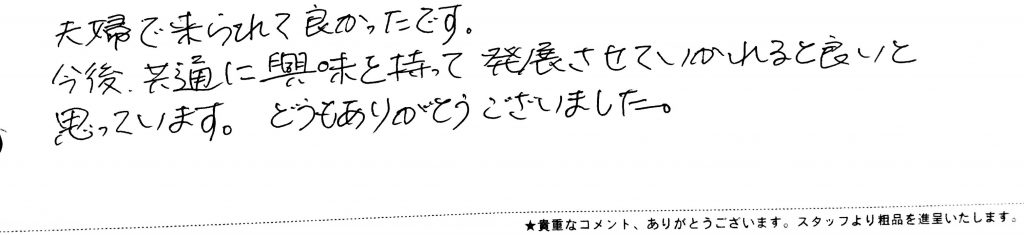 夫婦で来られて良かったです。
今後、共通に興味を持って発展させていかれると良いと
思っています。どうもありがとうございました。
★貴重なコメント、ありがとうございます。スタッフより粗品を進呈いたします。